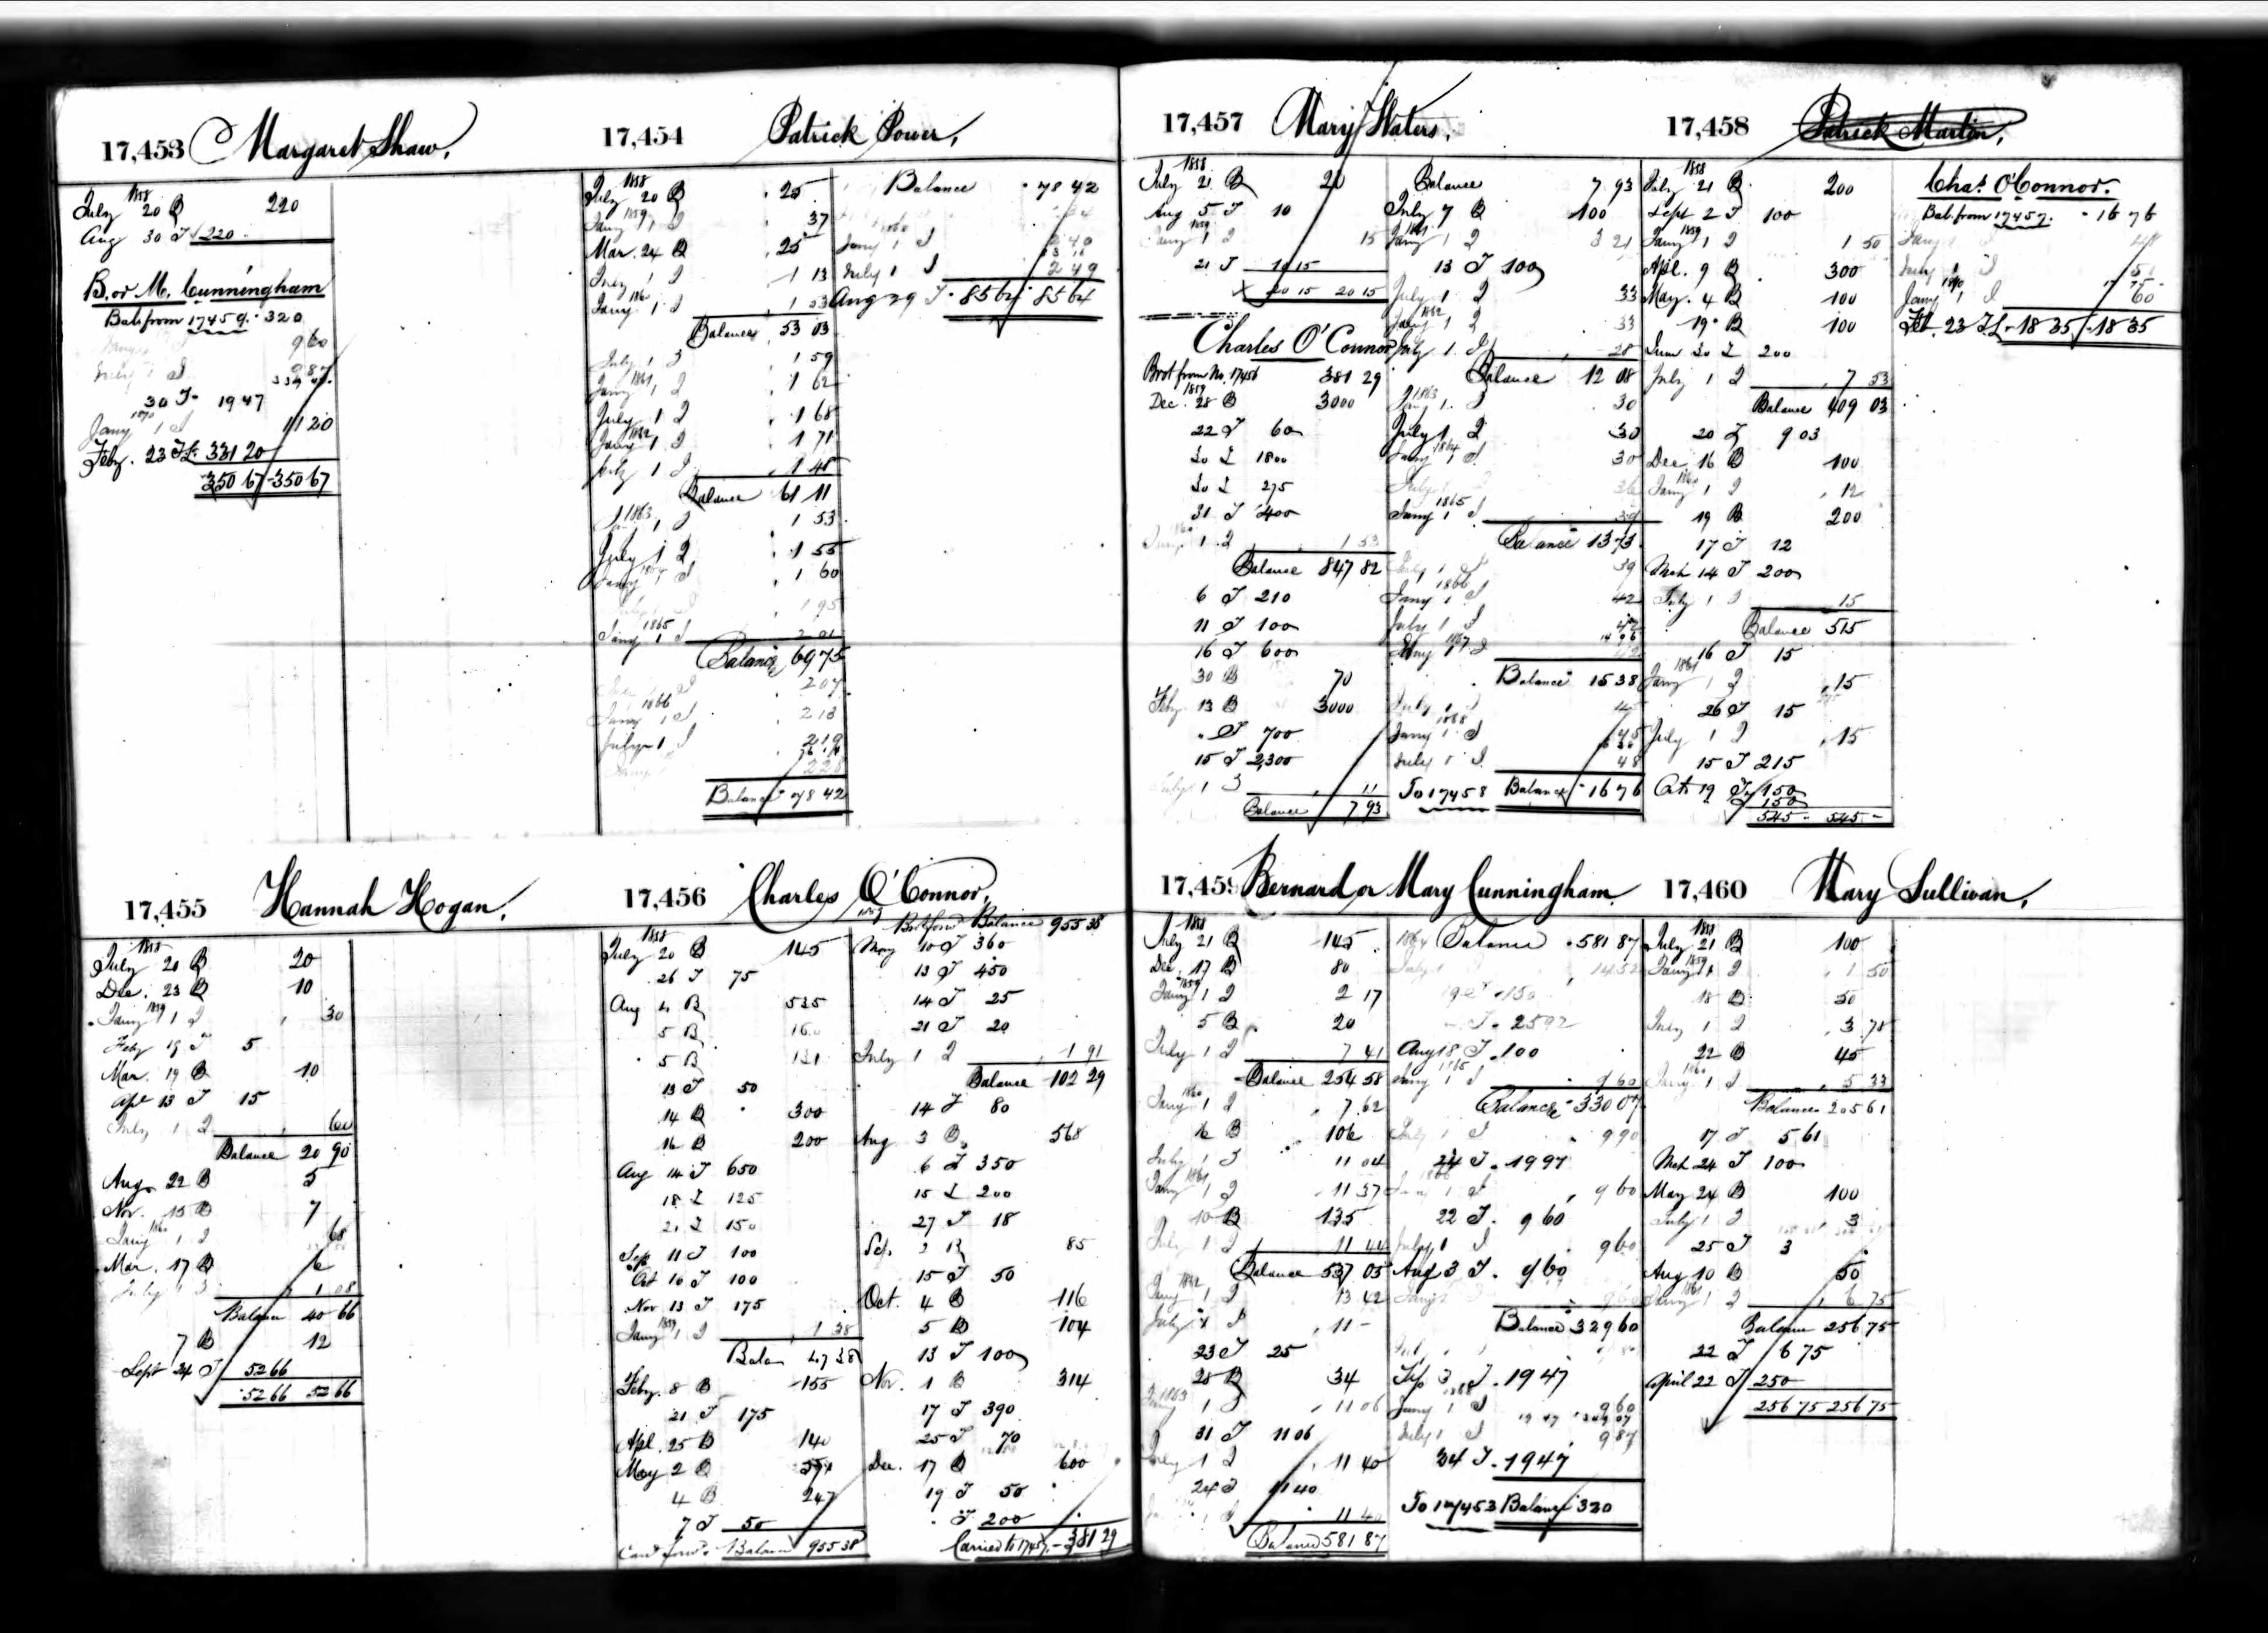 17,453 Margaret Shaw.
1858
July 20 B 220
Aug 30 T 220
B. or M. Cunningham
Bal. from 17459. 320
9 60
July 1 I 9 87
30 T 19 47
1870
Jany 1 I 11 20
Feby. 23 TL 331 20
350 67 350 67
17,454 Patrick Power,
1858
July 20 B 25
1859
Jany 1 I 37
Mar. 24 B 25
July 1 I 1 13
1860
Jany 1 I 1 53
Balance 53 03
July 1 I 1 59
1861
Jany 1 I 1 62
July 1 I 1 68
1862
Jany 1 I 1 71
July 1 I 1 48
Balance 61 11
1863
Jany 1 I 1 53
July 1 I 1 55
1864
Jany 1 I 1 60
1 95
1865
Jany 1 I 2 01
Balance 69 75
2 07
1866
Jany 1 I 2 13
July 1 I 2 19
2 28
Balance 78 42
Balance 78 42
Jany 1 I 2 40
July 1 I 2 49
Aug 29 T 85 64 85 64
17,455 Hannah Hogan.
1858
July 20 B 20
Dec. 23 B 10
1859
Jany 1 I 30
Feby 19 T 5
Mar. 19 B 10
Apl 13 T 15
July 1 I 60
Balance 20 90
Aug. 22 B 5
Nov. 15 B 7
1860
Jany 1 I 68
Mar. 17 B 6
July 1 I 1 08
Balance 40 66
7 B 12
Sept 24 T 52 66
52 66 52 66
17,456 Charles O'Connor,
1858
July 20 B 145
26 T 75
Aug 4 B 535
5 B
5 B 131
13 T 50
14 B 300
16 B 200
Aug 14 T 650
18 T 125
21 T 150
Sep 11 T 100
Oct 16 T 100
Nov 13 T 175
1859
Jany 1 I 1 38
Balan 47 38
Feby. 8 B 155
21 T 175
Apl. 25 B 140
May 2 B 591
4 B 247
7 T 50
Card forwd. Balance 955 38
Bot forwd Balance 955 38
May 10 T 360
13 T 450
14 T 25
21 T 20
July 1 I 1 91
Balance 102 29
14 T 80
Aug 3 B 568
6 T 350
15 T 200
27 T 18
Sep. 3 B 85
15 T 50
Oct. 4 B 116
5 B 104
13 T 100
Nov. 1 B 314
17 T 390
25 T 70
Dec. 17 B 600
19 T 50
T 200
Carried to 17457. 381 29
17,457 Mary Waters.
1858
July 21 B 20
Aug 5 T 10
1859
Jany 1 I 15
21 T 10 15
20 15 20 15
Charles O'Connor
Brot from No. 17456 381 29
1859
Dec. 28 B 3000
22 T 60
30 T 1800
30 T 275
31 T 400
1860
Jany 1 I 1 53
Balance 847 82
6 T 210
11 T 100
16 T 600
30 B 70
Feby 13 B 3000
T 700
15 T 2,300
July 1 I 11
Balance 7 93
Balance 7 93
July 7 B 100
1861
Jany 1 I 3 21
13 T 100
July 1 I 33
1862
Jany 1 I 33
July 1 I 28
Balance 12 08
1863
Jany 1 I 30
July 1 I 30
1864
Jany 1 I 30
July 1 I 36
1865
Jany 1 I 39
Balance 13 73
July 1 I 39
1866
Jany 1 I 42
July 1 I 42
1867
Jany 1 I 42
Balance 15 38
July 1 I 45
1868
Jany 1 I 45
July 1 I 48
To 17458 Balance 16 76
17,458 Patrick Martin,
1858
July 21 B 200
Sept 2 T 100
1859
Jany 1 I 1 50
Apl. 9 B 300
May. 4 B 100
19 B 100
June 30 T 200
July 1 I 7 53
Balance 409 03
20 T 9 03
Dec 16 B 100
1860
Jany 1 I 12
19 B 200
17 T 12
Mch 14 T 200
July 1 I 15
Balance 515
16 T 15
1861
Jany 1 I 15
26 T 15
July 1 I 15
15 T 215
Oct 19 T 150
150
545 - 545 -
Chas. O'Connor.
Bal. from 17457. 16 76
Jany 48
July 1 I 51
1870
Jany 1 I 60
Feb. 23 TL 18 35 18 35
17,459 Bernard or Mary Cunningham
1858
July 21 B 145
Dec. 17 B 80
1859
Jany 1 I 2 17
5 B 20
July 1 I 7 41
Balance 254 58
1860
Jany 1 I 7 62
16 B 106
July 1 I 11 04
1861
Jany 1 I 11 37
10 B 135
July 1 I 11 44
Balance 537 05
1862
Jany 1 I 13 42
July 1 I 11 -
23 T 25
28 B 34
1863
Jany 1 I 11 06
31 T 11 06
July 1 I 11 40
24 T 11 40
11 40
Balance 581 87
1864 Balance 581 87
July 1 14 52
19 T 150
T 25 92
Aug 18 T 100
1865
Jany 1 I 9 60
Balance 330 07
July 1 I 9 90
24 T 19 97
1866
Jany 1 I 9 60
22 T 9 60
July 1 I 9 60
Aug 3 T 9 60
Balance 329 60
Sep 3 T 19 47
1868
Jany 1 I 9 60
July 1 I 9 87
24 T 19 47
To 17453 Balance 320
17,460 Mary Sullivan,
1858
July 21 B 100
1859
Jany 1 I 1 50
18 B 50
July 1 I 3 78
22 B 45
1860
Jany 1 I 5 33
Balance 205 61
17 T 5 61
Mch 24 T 100
May 24 B 100
July 1 I 3
25 T 3
Aug 10 B 50
1861
Jany 1 I 6 75
Balance 256 75
22 T 6 75
April 22 T 250
256 75 256 75